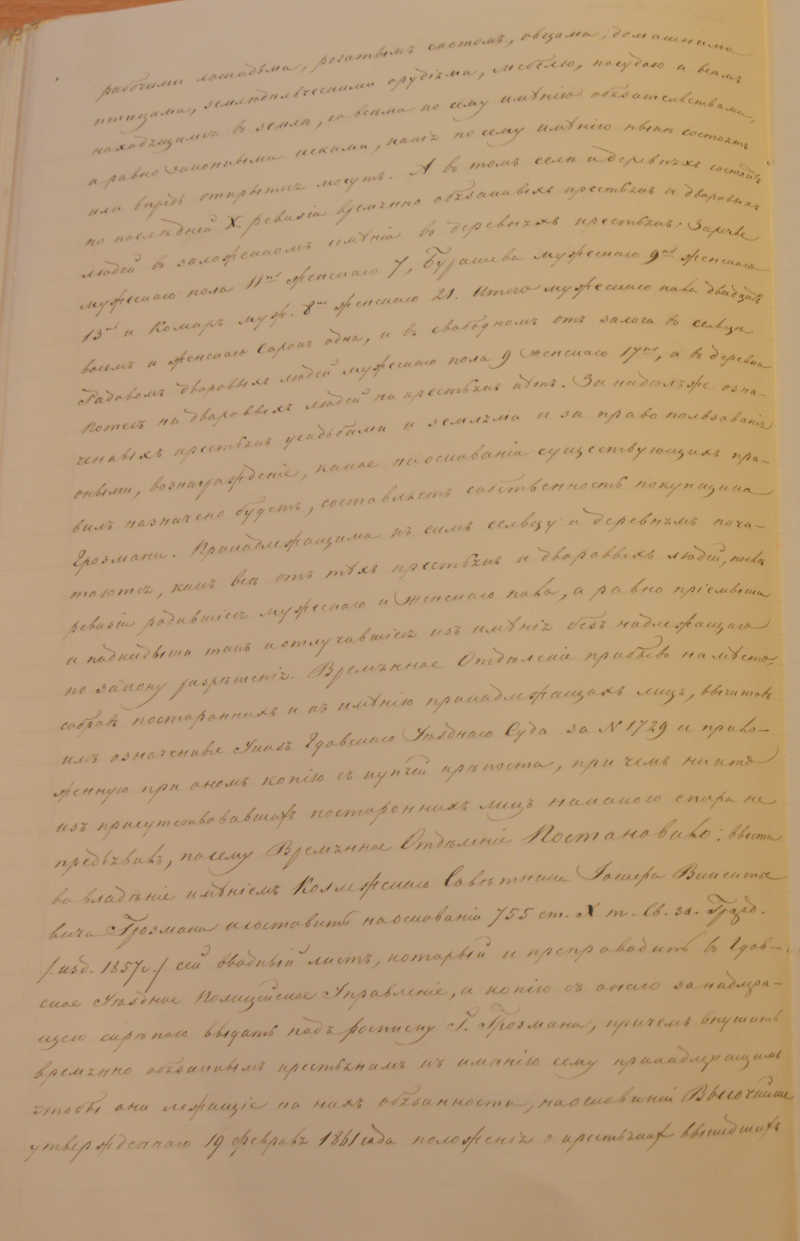 рабочими лошадьми, рогатымъ скотомъ, овцами, домашними
птицами, земледѣльческими орудіями, мебелью, посудою и всемъ
находящимся въ земли, со всеми по сему имѣнію обязательствами,
а равно законными исками, какіе по сему имѣнію нынѣ состоятъ
или впредь открытися могутъ. А въ томъ селѣ и деревняхъ состоитъ
по последней X. ревизіи временно обязанныхъ крестьянъ и дворовыхъ
людей въ заложенномъ имѣніи въ деревняхъ крестьянъ: Заречье
мужескаго пола 11ть женскаго 7, Бурашева мужескаго 9ть женскаго
13ть и Комаръ муж. 8мь женскаго 21. Итого мужескаго пола двадцать
восемь и женскаго сорокъ одна, и въ свободномъ отъ залога въ сельце
дворовыхъ людей мужескаго пола 9 женскаго 17ть, а въ деревне
Котесъ ни дворовыхъ людей ни крестьянъ нѣтъ. За надѣлъ же озна-
ченныхъ крестьянъ усадьбами и землями и за право пользованія
оными, вознагражденіе, какое на основаніи существующихъ пра-
вилъ назначено будетъ, составляетъ собственность покупщика
Грозмани. Принадлежащими къ симъ сельцу и деревнямъ почи-
таются, какъ все отъ тѣхъ крестьянъ и дворовыхъ людей, после
ревизіи родившіеся мужескаго и женскаго пола, а равно пріемыши
и подкидыши такъ и отлучившіеся изъ имѣнія безъ надлежащаго
по закону разрѣшенія. Временное Отдѣленіе прибывъ на мѣсто,
собравъ постороннихъ и къ имѣнію принадлежащихъ лицъ, вычитавъ
имъ означенный Указъ Гдовскаго Уѣзднаго Суда за N 1729 и прило-
женную при ономъ копію съ купчей крѣпости, при чемъ никто
изъ присутствовавшихъ постороннихъ лицъ никакого спора не
предъявилъ, посему Временное Отдѣленіе Постановило: ввести
во владѣніе имѣніемъ Коллежскаго Совѣтника Викентье
вича Грозмана и составить на основаніи 755 ст. X т. Св. за. Гражд.
/изд. 1857г./ сей вводный листъ, который и препроводить въ Гдов-
ское Уѣздное Полицейское Управленіе, а копію съ онаго за надлежа-
щею скрепою выдать подъ росписку Г. Грозмана, причемъ внушить
временно обязаннымъ крестьянамъ къ имѣнію сему принадлежащимъ
чтобы они лежащіе на нихъ обязанности, на основаніи Высочайше
утвержденнаго 19 февраля 1861 года положенія о крестьянахъ вышедшихъ